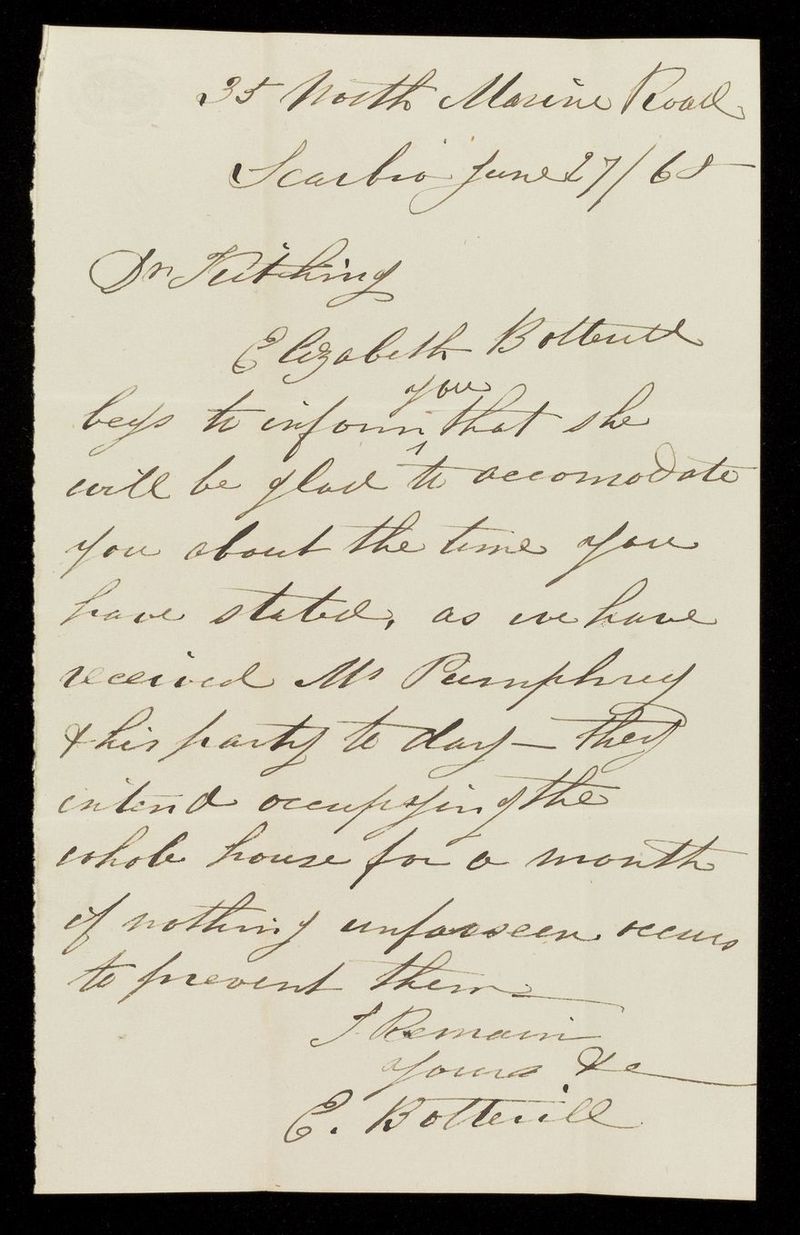 35 North Marine Road
Scarbro June 27/68
Dr Kitching
Elizabeth Botterill
begs to inform you that she
will be glad to accomodate
you about the time you
have stated, as we have
received Mr Pumphrey
& his party to day — they
intend occupying the
whole house for a month
if nothing unforseen occurs
to prevent them
I Remain
yours &c
E. Botterill